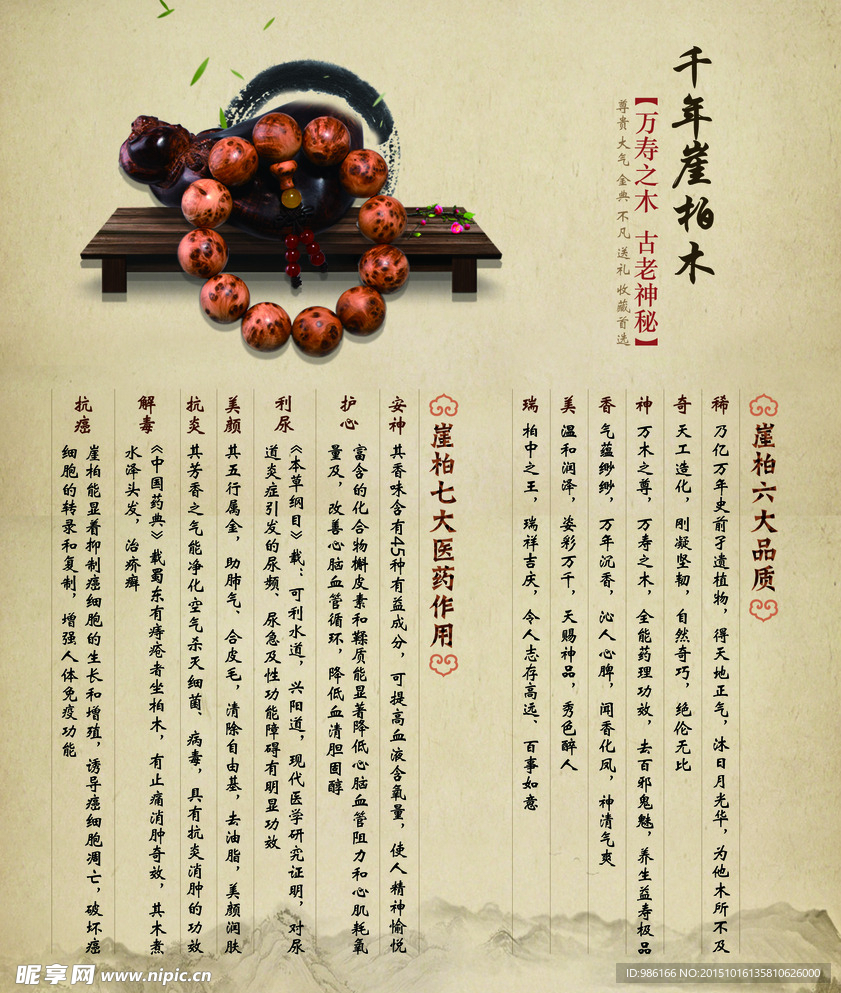 千年崖柏木
【万寿之木 古老神秘】
尊贵大气 金典不凡 送礼收藏首选
崖柏六大品质
稀 乃亿万年史前孑遗植物，得天地正气，沐日月光华，为他木所不及
奇 天工造化，刚凝坚韧，自然奇巧，绝伦无比
神 万木之尊，万寿之木，全能药理功效，去百邪鬼魅，养生益寿极品
香 气蕴缈缈，万年沉香，沁人心脾，闻香化风，神清气爽
美 温和润泽，姿彩万千，天赐神品，秀色醉人
瑞 柏中之王，瑞祥吉庆，令人志存高远、百事如意
崖柏七大医药作用
安神 其香味含有45种有益成分，可提高血液含氧量，使人精神愉悦
护心 富含的化合物槲皮素和鞣质能显著降低心脑血管阻力和心肌耗氧
量及，改善心脑血管循环，降低血清胆固醇
利尿 《本草纲目》载：可利水道，兴阳道，现代医学研究证明，对尿
道炎症引发的尿频、尿急及性功能障碍有明显功效
美颜 其五行属金，助肺气、合皮毛，清除自由基，去油脂，美颜润肤
抗炎 其芳香之气能净化空气杀灭细菌、病毒，具有抗炎消肿的功效
解毒 《中国药典》载蜀东有痔疮者坐柏木，有止痛消肿奇效，其木煮
水泽头发，治疥癣
抗癌 崖柏能显着抑制癌细胞的生长和增殖，诱导癌细胞凋亡，破坏癌
细胞的转录和复制，增强人体免疫功能
昵享网 www.nipic.cn
ID:986166 NO:20151016135810626000